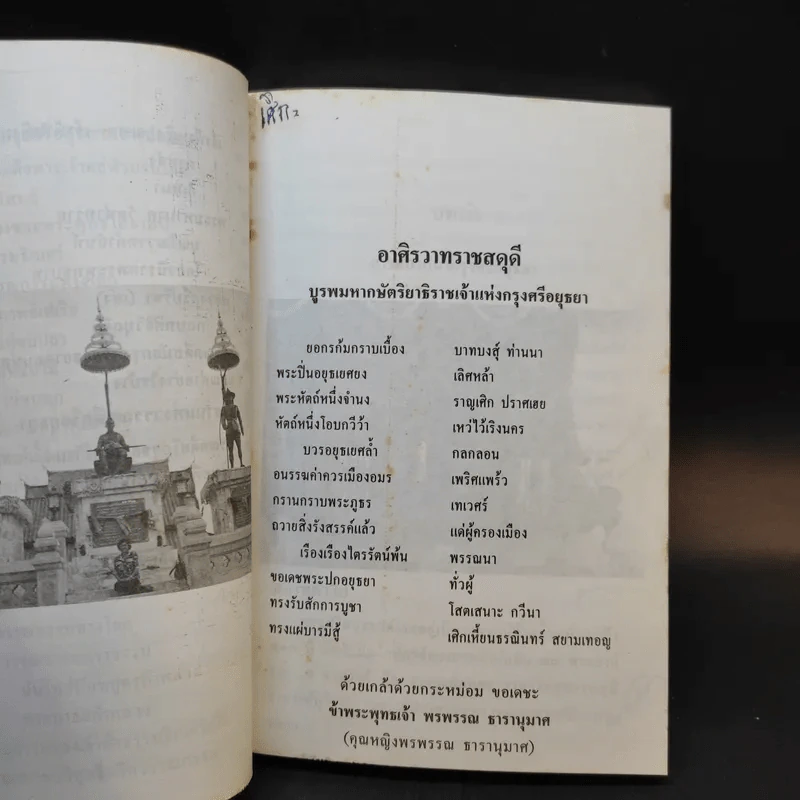 อาศิรวาทราชสดุดี
บูรพมหากษัตริยาธิราชเจ้าแห่งกรุงศรีอยุธยา
ยอกรก้มกราบเบื้อง บาทบงสุ์ ท่านนา
พระปิ่นอยุธเยศยง เลิศหล้า
พระหัตถ์หนึ่งจำนง ราญเศิก ปราศเฮย
หัตถ์หนึ่งโอบกวีว้า เหว่ไว้เริงนคร
บวรอยุธเยศล้ำ กลกลอน
อนรรฆค่าควรเมืองอมร เพริศแพร้ว
กรานกราบพระภูธร เทเวศร์
ถวายสิ่งรังสรรค์แล้ว แด่ผู้ครองเมือง
เรืองเรืองไตรรัตน์พ้น พรรณนา
ขอเดชพระปกอยุธยา ทั่วผู้
ทรงรับสักการบูชา โสตเสนาะ กวีนา
ทรงแผ่บารมีสู้ เศิกเหี้ยนธรณินทร์ สยามเทอญ
ด้วยเกล้าด้วยกระหม่อม ขอเดชะ
ข้าพระพุทธเจ้า พรพรรณ ธารานุมาศ
(คุณหญิงพรพรรณ ธารานุมาศ)